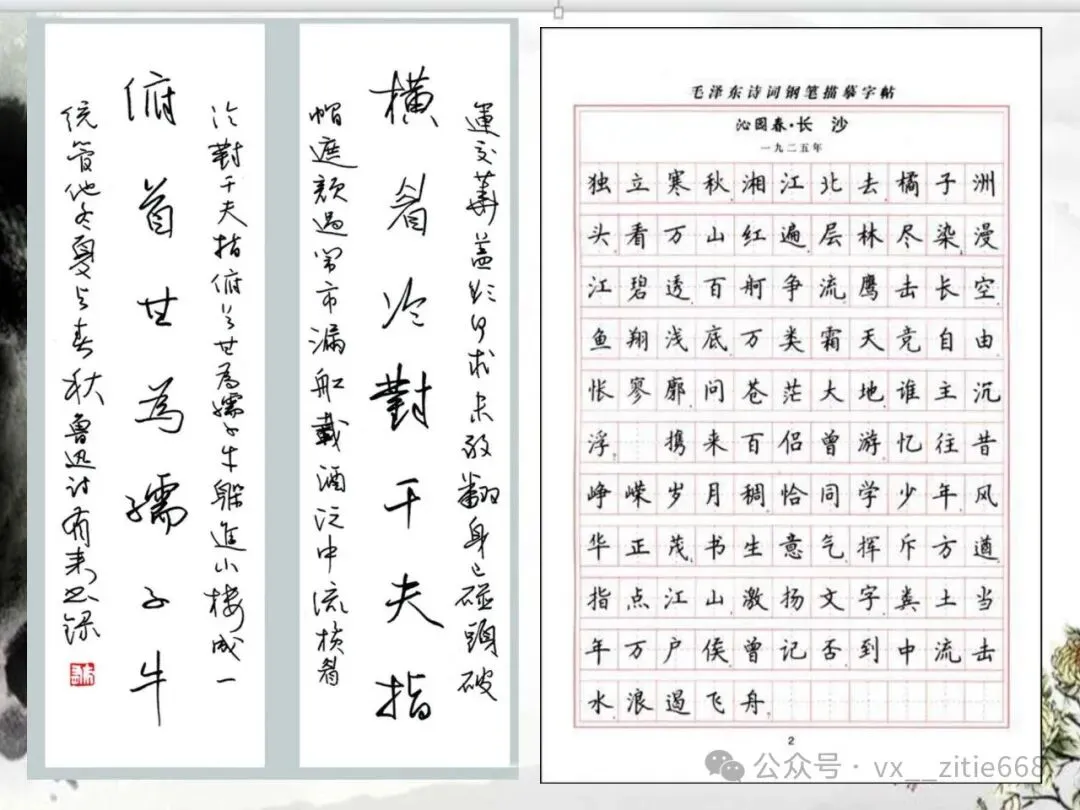 運交華蓋欲何求未敢翻身已碰頭破
橫眉冷對千夫指
帽遮顏過鬧市漏船載酒泛中流橫眉
冷對千夫指俯首甘為孺子牛躲進小樓成一
俯首甘為孺子牛
統管他冬夏与春秋魯迅诗
毛泽东诗词钢笔描摹字帖
沁园春·长 沙
一九二五年
独立寒秋,湘江北去,橘子洲
头看万山红遍,层林尽染,漫
江碧透,百舸争流鹰击长空,
鱼翔浅底,万类霜天竞自由
怅寥廓,问苍茫大地,谁主沉
浮? 携来百侣曾游,忆往昔
峥嵘岁月稠恰同学少年,风
华正茂,书生意气,挥斥方遒
指点江山,激扬文字,粪土当
年万户侯曾记否,到中流击
水,浪遏飞舟
2
公众号·vx__zitie668